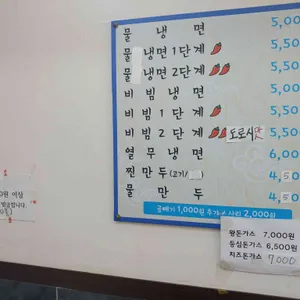 물 냉 면 5,00
물 냉면 1 단 계 5,50
물 냉면 2 단 계 5,50
비 빔 냉 면 5,00
비 빔 1 단 계 5,50
비 빔 2 단 계 도로시맛 5,50
열 무 냉 면 6,00
찐 만 두 (고기/ 4,50
물 만 두 4,50
곱빼기 1,000원 추가 사리 2,000원
이상
왕돈가스 7,000원
등심돈가스 6,500원
치즈돈가스 7000